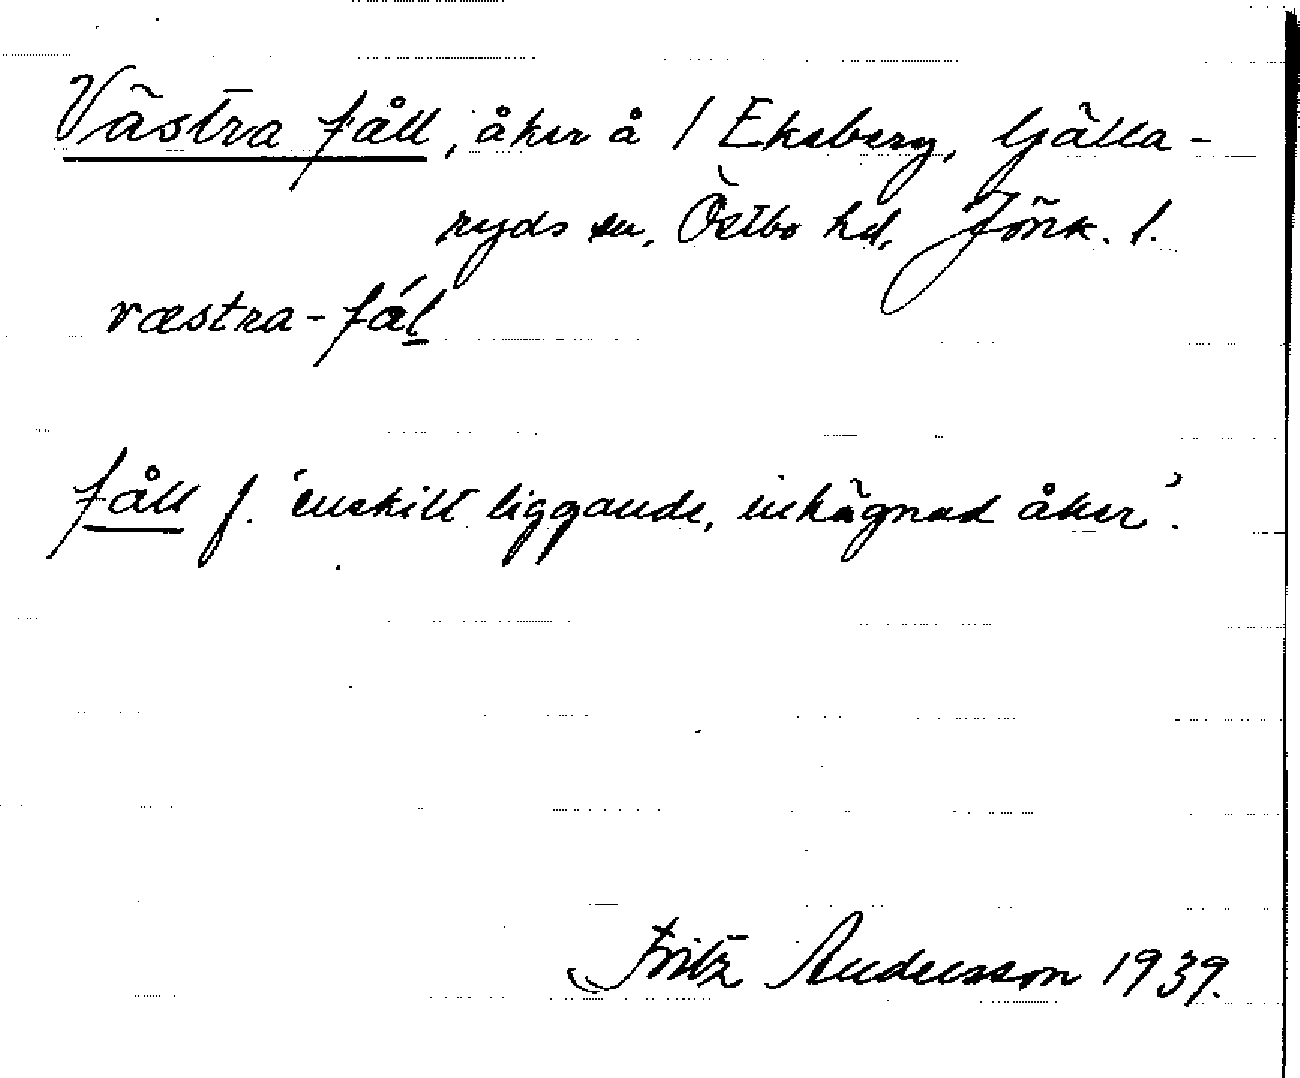 Västra fåll, åker å 1 Ekeberg, Gälla-
ryds sn, Östbo hd, Jönk. l.
væstra-fál
fåll f. 'enskilt liggande, inhägnad åker'.
Fritz Andersson 1939.